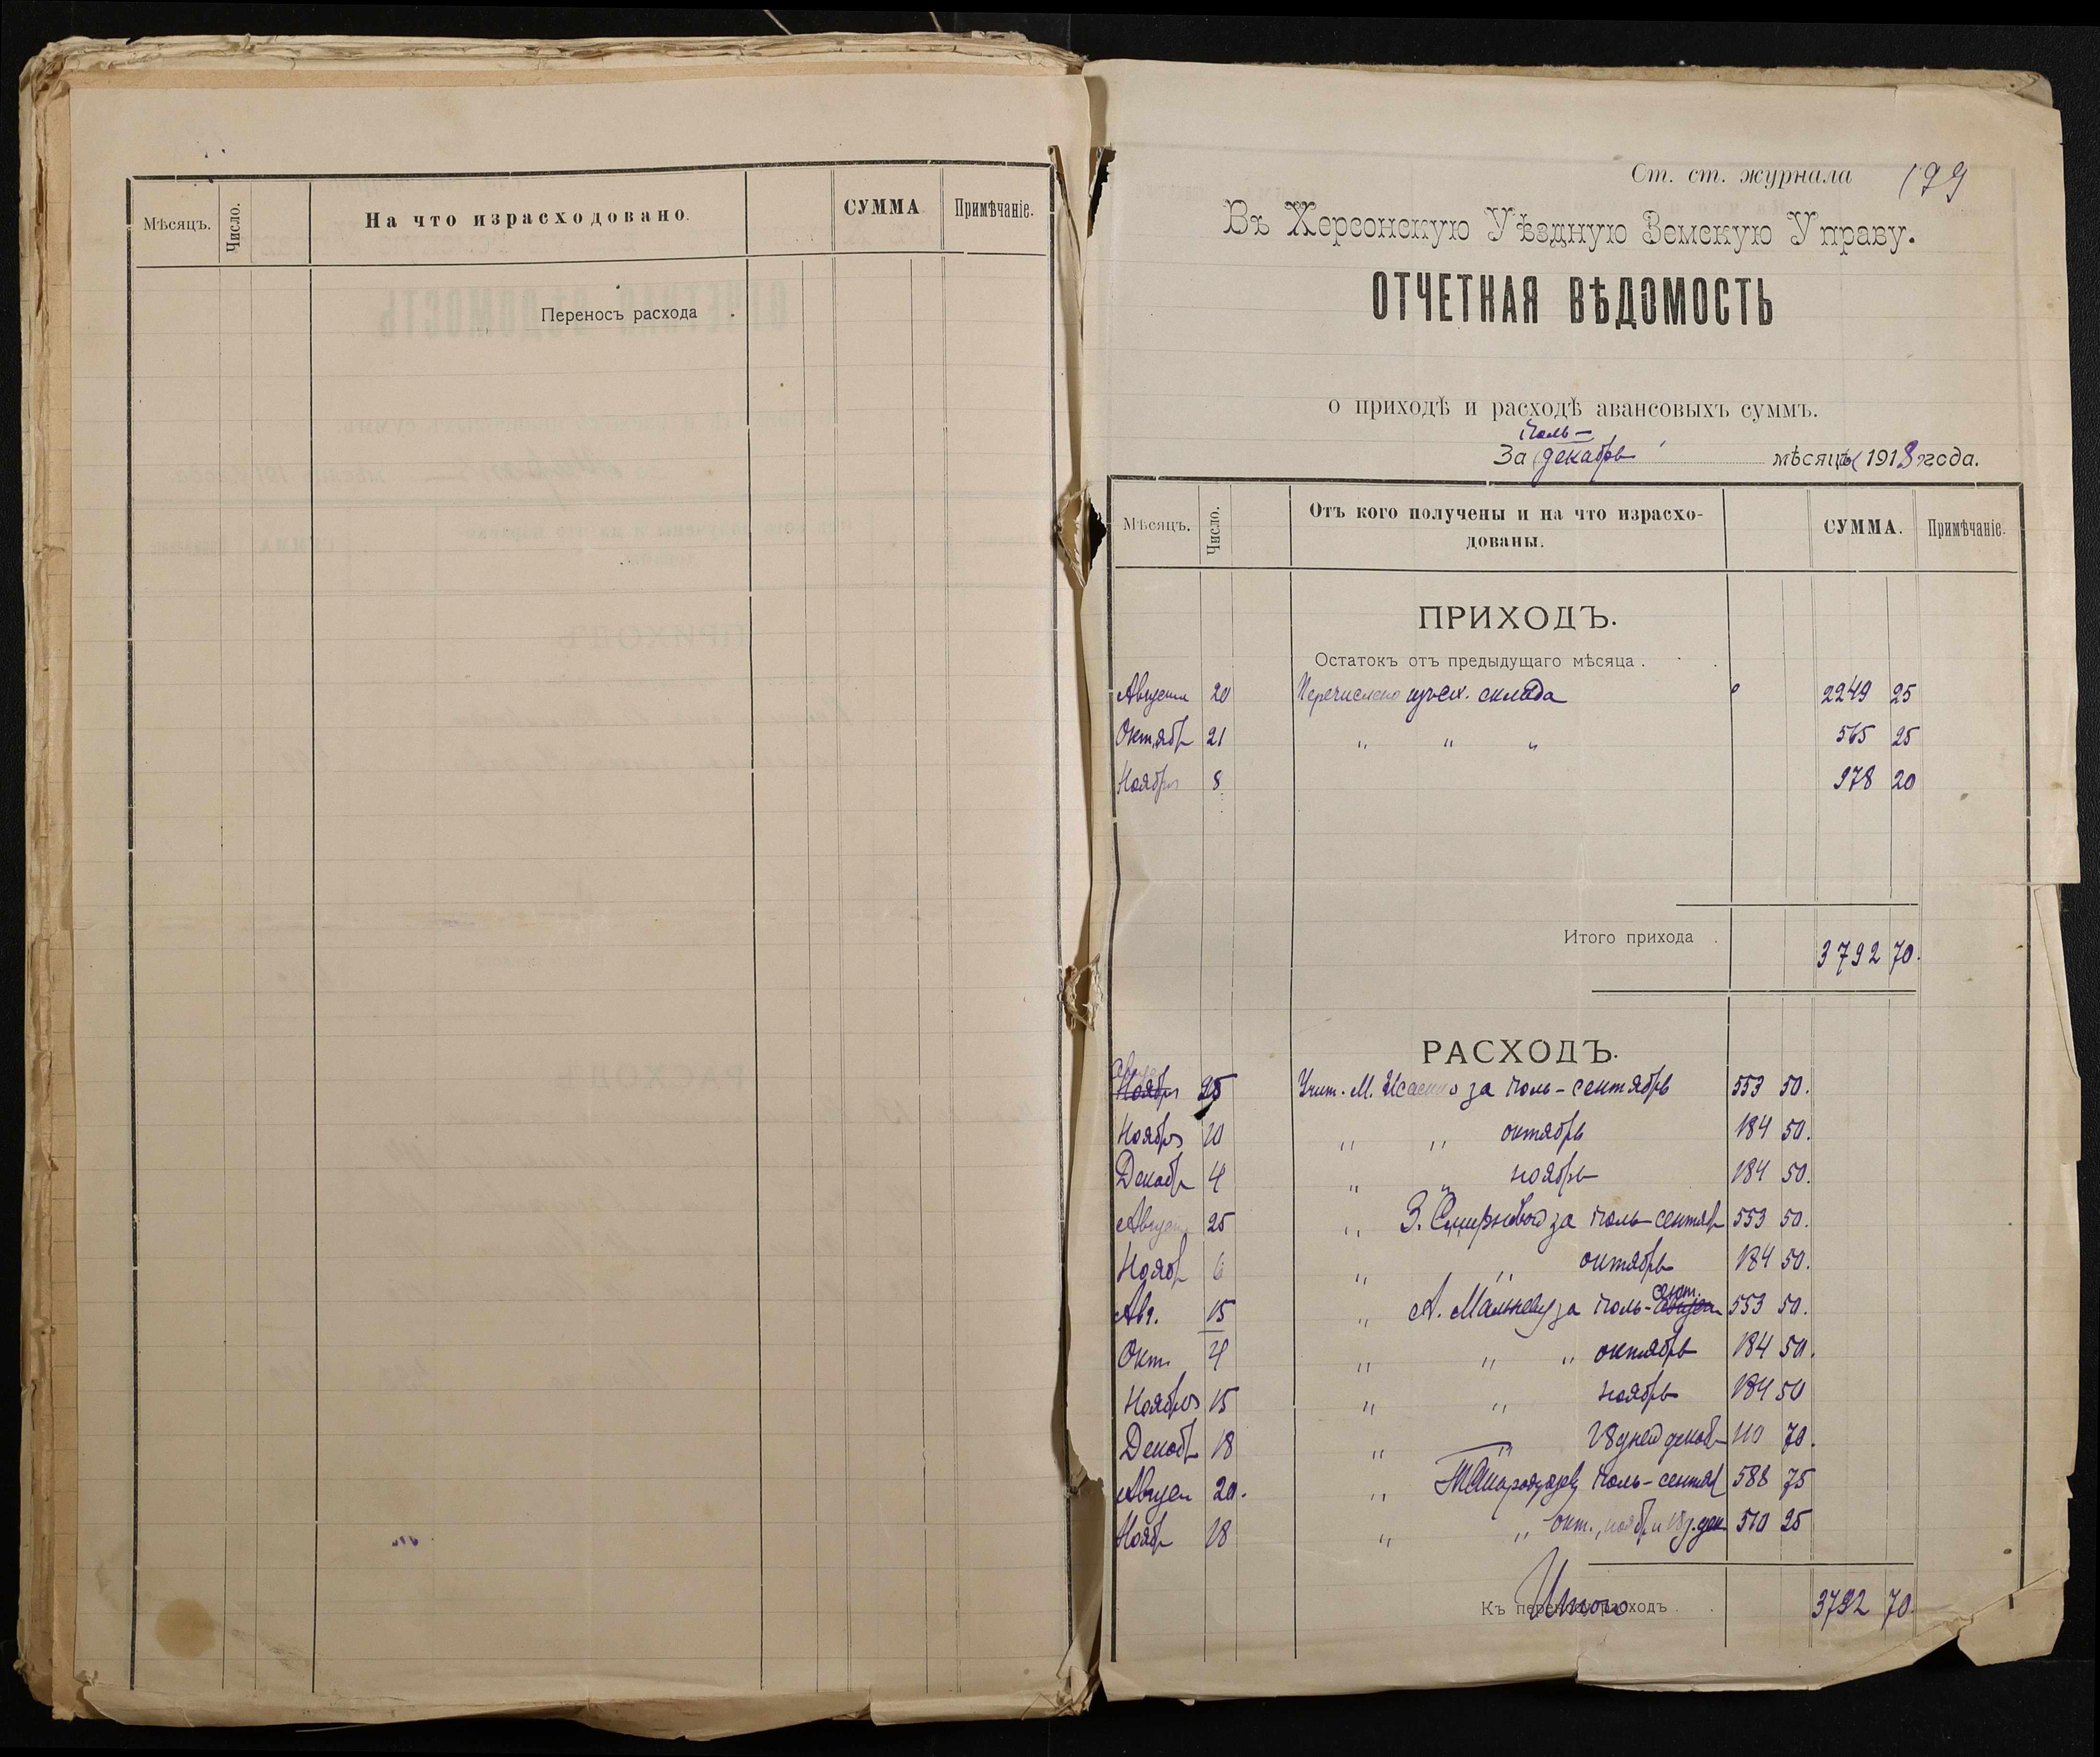 Мѣсяцъ.
Число.
На что израсходовано.
СУММА
Примѣчаніе.
Переносъ расхода
Ст. ст. журнала 199
Въ Херсонскую Уѣздную Земскую Управу.
ОТЧЕТНАЯ ВѢДОМОСТЬ
о приходѣ и расходѣ авансовыхъ суммъ.
Іюль-
За декабрь мѣсяцъ 1918 года.
Мѣсяцъ.
Число.
Отъ кого получены и на что израсхо-
дованы.
СУММА.
Примѣчаніе.
ПРИХОДЪ.
Остатокъ отъ предыдущаго мѣсяца.
Августа 20 Перечислено склада 2249 25
Октябр 21 " " " 565 25
Ноябрь 8 978 20
Итого прихода 3792 70.
РАСХОДЪ.
Ноябрь 25 Учит. М. Исаенко за Іюль-сентябрь 553 50.
Ноябрь 10 " " октябрь 184 50.
Декабр 4 " " ноябрь 184 50.
Август 25 " З. Смирновой за Іюль-сентяб 553 50.
Нояб 6 " " октябрь 184 50.
сент.
Авг. 15 " А. за Іюль- 553 50.
Окт. 4 " " " октябрь 184 50.
Ноябрь 15 " " ноябрь 184 50
Декаб 18 " " 18 дней декаб 110 70.
Август 20. " Іюль-сентяб 588 75
Нояб 18 " " Окт., нояб и 18 д. дек. 510 25
Къ переносу расходъ Итого 3792 70.